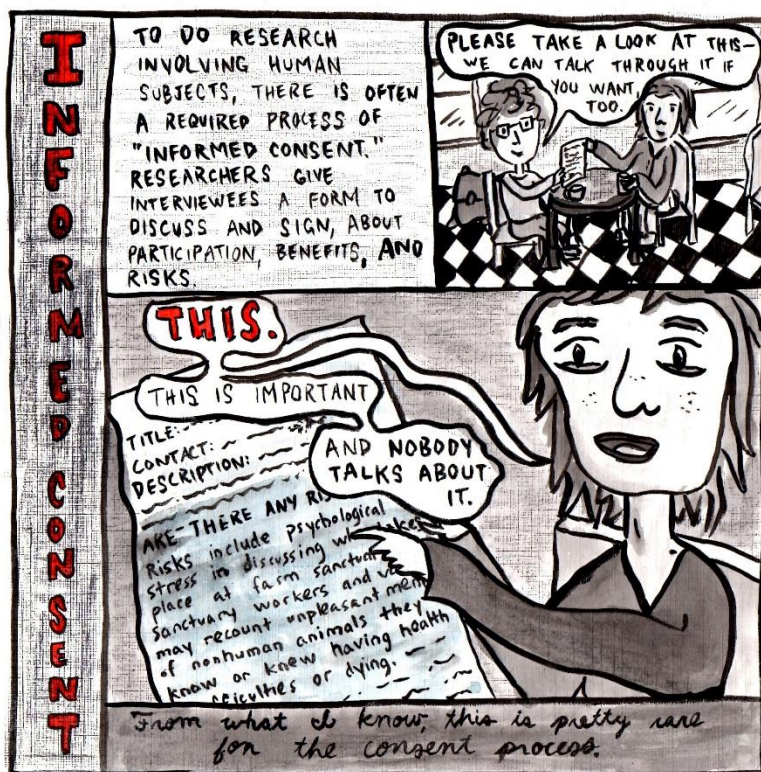 INFORMED CONSENT
TO DO RESEARCH
INVOLVING HUMAN
SUBJECTS, THERE IS OFTEN
A REQUIRED PROCESS OF
"INFORMED CONSENT."
RESEARCHERS GIVE
INTERVIEWEES A FORM TO
DISCUSS AND SIGN, ABOUT
PARTICIPATION, BENEFITS, AND
RISKS.
PLEASE TAKE A LOOK AT THIS—
WE CAN TALK THROUGH IT IF
YOU WANT,
TOO.
THIS.
THIS IS IMPORTANT
AND NOBODY
TALKS ABOUT
IT.
TITLE:
CONTACT:
DESCRIPTION:
ARE THERE ANY
Risks include psychological
stress in discussing
place at farm
sanctuary workers and
may recount unpleasant
of nonhuman animals they
know or knew having health
or dying.
From what I know, this is pretty rare
for the consent process.